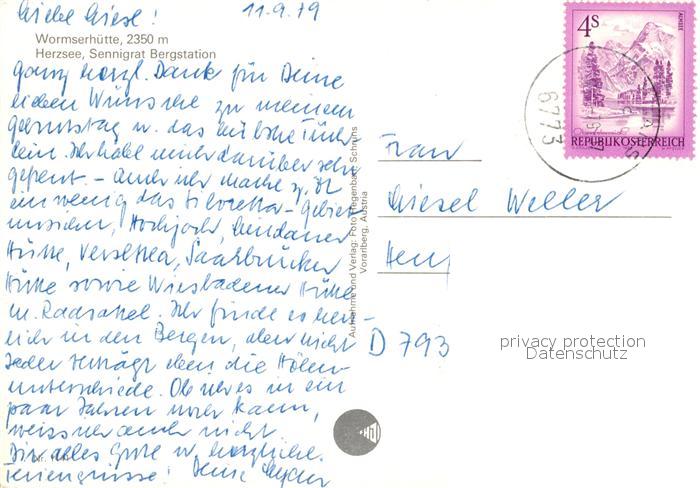 Liebe Giesel! 11.9.79
Wormserhütte, 2350 m
Herzsee, Sennigrat Bergstation
ganz herzl. Dank für Deine
lieben Wünsche zu meinem
Geburtstag u. das hübsche Tüch-
lein. Ich habe mich darüber sehr
gefreut – Auch ich mache z. Zt
ein wenig das Silvretta-Gebiet
unsicher, Hochjoch, Lindauer
Hütte, Versettla, Saarbrücker
Hütte sowie Wiesbadener Hütte
m. Radsattel. Ich finde es herr-
lich in den Bergen, aber nicht
Jeder verträgt eben die Höhen-
unterschiede. Ob ich es in ein
paar Jahren noch kann,
weiss ich auch nicht
Dir alles Gute u. herzliche
Feriengrüsse! Deine
Aufnahme und Verlag: Foto Hegenbart, Schruns
Vorarlberg, Austria
4S
ALMSEE
REPUBLIK ÖSTERREICH
6773
Frau
Giesel Weller
D 793
privacy protection
Datenschutz